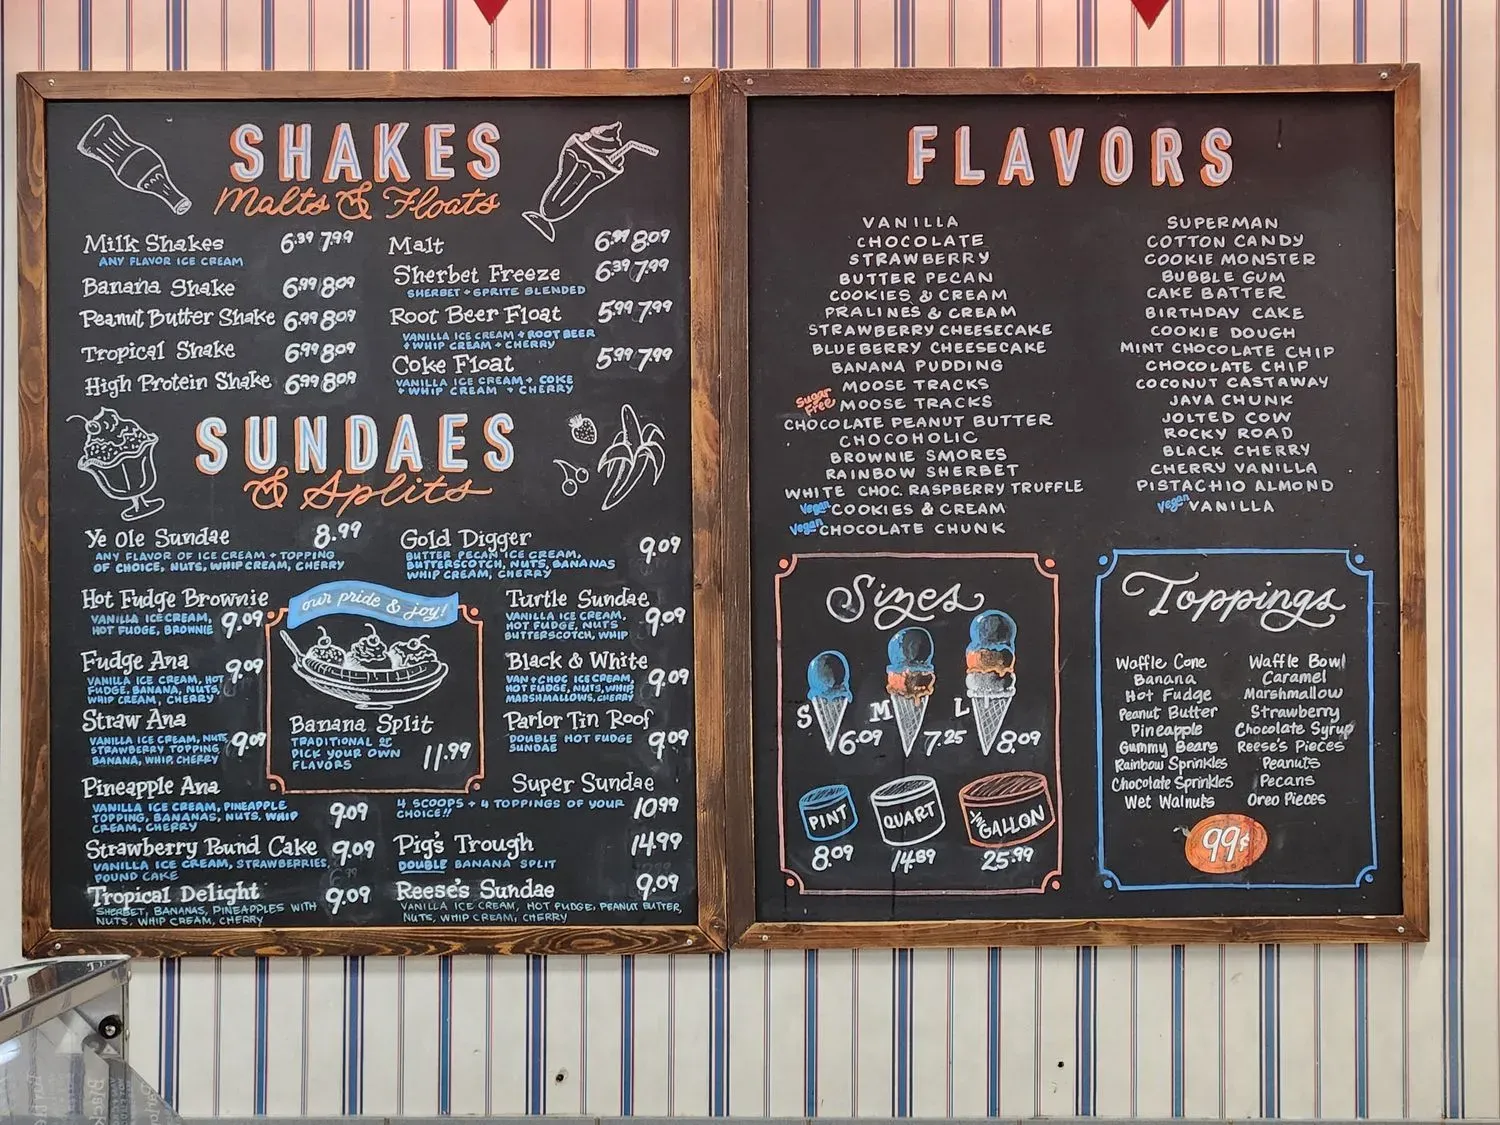 SHAKES
Malts & Floats
Milk Shakes 6.39 7.99
ANY FLAVOR ICE CREAM
Banana Shake 6.99 8.09
Peanut Butter Shake 6.99 8.09
Tropical Shake 6.99 8.09
High Protein Shake 6.99 8.09
Malt 6.99 8.09
Sherbet Freeze 6.39 7.99
SHERBET + SPRITE BLENDED
Root Beer Float 5.99 7.99
VANILLA ICE CREAM + ROOT BEER
+ WHIP CREAM + CHERRY
Coke Float 5.99 7.99
VANILLA ICE CREAM + COKE
+ WHIP CREAM + CHERRY
SUNDAES
& Splits
Ye Ole Sundae 8.99
ANY FLAVOR OF ICE CREAM + TOPPING
OF CHOICE, NUTS, WHIP CREAM, CHERRY
Hot Fudge Brownie
VANILLA ICE CREAM,
HOT FUDGE, BROWNIE 9.09
Fudge Ana
VANILLA ICE CREAM, HOT
FUDGE, BANANA, NUTS,
WHIP CREAM, CHERRY
9.09
Straw Ana
VANILLA ICE CREAM, NUTS
STRAWBERRY TOPPING
BANANA, WHIP, CHERRY
9.09
Pineapple Ana
VANILLA ICE CREAM, PINEAPPLE
TOPPING, BANANAS, NUTS, WHIP
CREAM, CHERRY
9.09
Strawberry Pound Cake 9.09
VANILLA ICE CREAM, STRAWBERRIES,
POUND CAKE
Tropical Delight 9.09
SHERBET, BANANAS, PINEAPPLES WITH
NUTS, WHIP CREAM, CHERRY
our pride & joy!
Banana Split
TRADITIONAL or
PICK YOUR OWN
FLAVORS
11.99
Gold Digger 9.09
BUTTER PECAN ICE CREAM,
BUTTERSCOTCH, NUTS, BANANAS
WHIP CREAM, CHERRY
Turtle Sundae
VANILLA ICE CREAM,
HOT FUDGE, NUTS
BUTTERSCOTCH, WHIP
9.09
Black & White
VAN + CHOC ICE CREAM,
HOT FUDGE, NUTS, WHIP
MARSHMALLOWS, CHERRY
9.09
Parlor Tin Roof
DOUBLE HOT FUDGE
SUNDAE
9.09
Super Sundae
4 SCOOPS + 4 TOPPINGS OF YOUR
CHOICE!!
10.99
Pig's Trough 14.99
DOUBLE BANANA SPLIT
Reese's Sundae 9.09
VANILLA ICE CREAM, HOT FUDGE, PEANUT BUTTER,
NUTS, WHIP CREAM, CHERRY
FLAVORS
VANILLA
CHOCOLATE
STRAWBERRY
BUTTER PECAN
COOKIES & CREAM
PRALINES & CREAM
STRAWBERRY CHEESECAKE
BLUEBERRY CHEESECAKE
BANANA PUDDING
MOOSE TRACKS
Sugar Free MOOSE TRACKS
CHOCOLATE PEANUT BUTTER
CHOCOHOLIC
BROWNIE SMORES
RAINBOW SHERBET
WHITE CHOC. RASPBERRY TRUFFLE
Vegan COOKIES & CREAM
Vegan CHOCOLATE CHUNK
SUPERMAN
COTTON CANDY
COOKIE MONSTER
BUBBLE GUM
CAKE BATTER
BIRTHDAY CAKE
COOKIE DOUGH
MINT CHOCOLATE CHIP
CHOCOLATE CHIP
COCONUT CASTAWAY
JAVA CHUNK
JOLTED COW
ROCKY ROAD
BLACK CHERRY
CHERRY VANILLA
PISTACHIO ALMOND
Vegan VANILLA
Sizes
S 6.09
M 7.25
L 8.09
PINT
8.09
QUART
14.89
1/2 GALLON
25.99
Toppings
Waffle Cone
Banana
Hot Fudge
Peanut Butter
Pineapple
Gummy Bears
Rainbow Sprinkles
Chocolate Sprinkles
Wet Walnuts
Waffle Bowl
Caramel
Marshmallow
Strawberry
Chocolate Syrup
Reese's Pieces
Peanuts
Pecans
Oreo Pieces
99¢